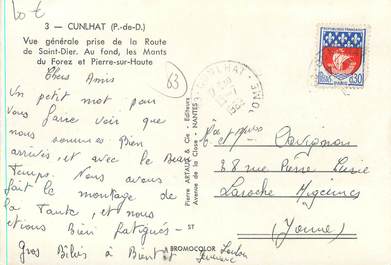 20 €
3 — CUNLHAT (P.-de-D.)
Vue générale prise de la Route
de Saint-Dier. Au fond, les Monts
du Forez et Pierre-sur-Haute
63
Chers Amis
Un petit mot pour
vous faire voir que
nous sommes Bien
arrivés, et avec le Beau
Temps. Nous avons
fait le montage de
la Tante, et nous
etions Bien fatigués -
Gros Bibis à Bientot
Loulou
Pierre ARTAUD & Cie - Editeurs
Avenue de la Close - NANTES
ST
BROMOCOLOR
CUNLHAT
DOME
REPUBLIQUE FRANCAISE
0,30
PARIS
et
38 rue Pierre
Laroche Migennes
(Yonne)